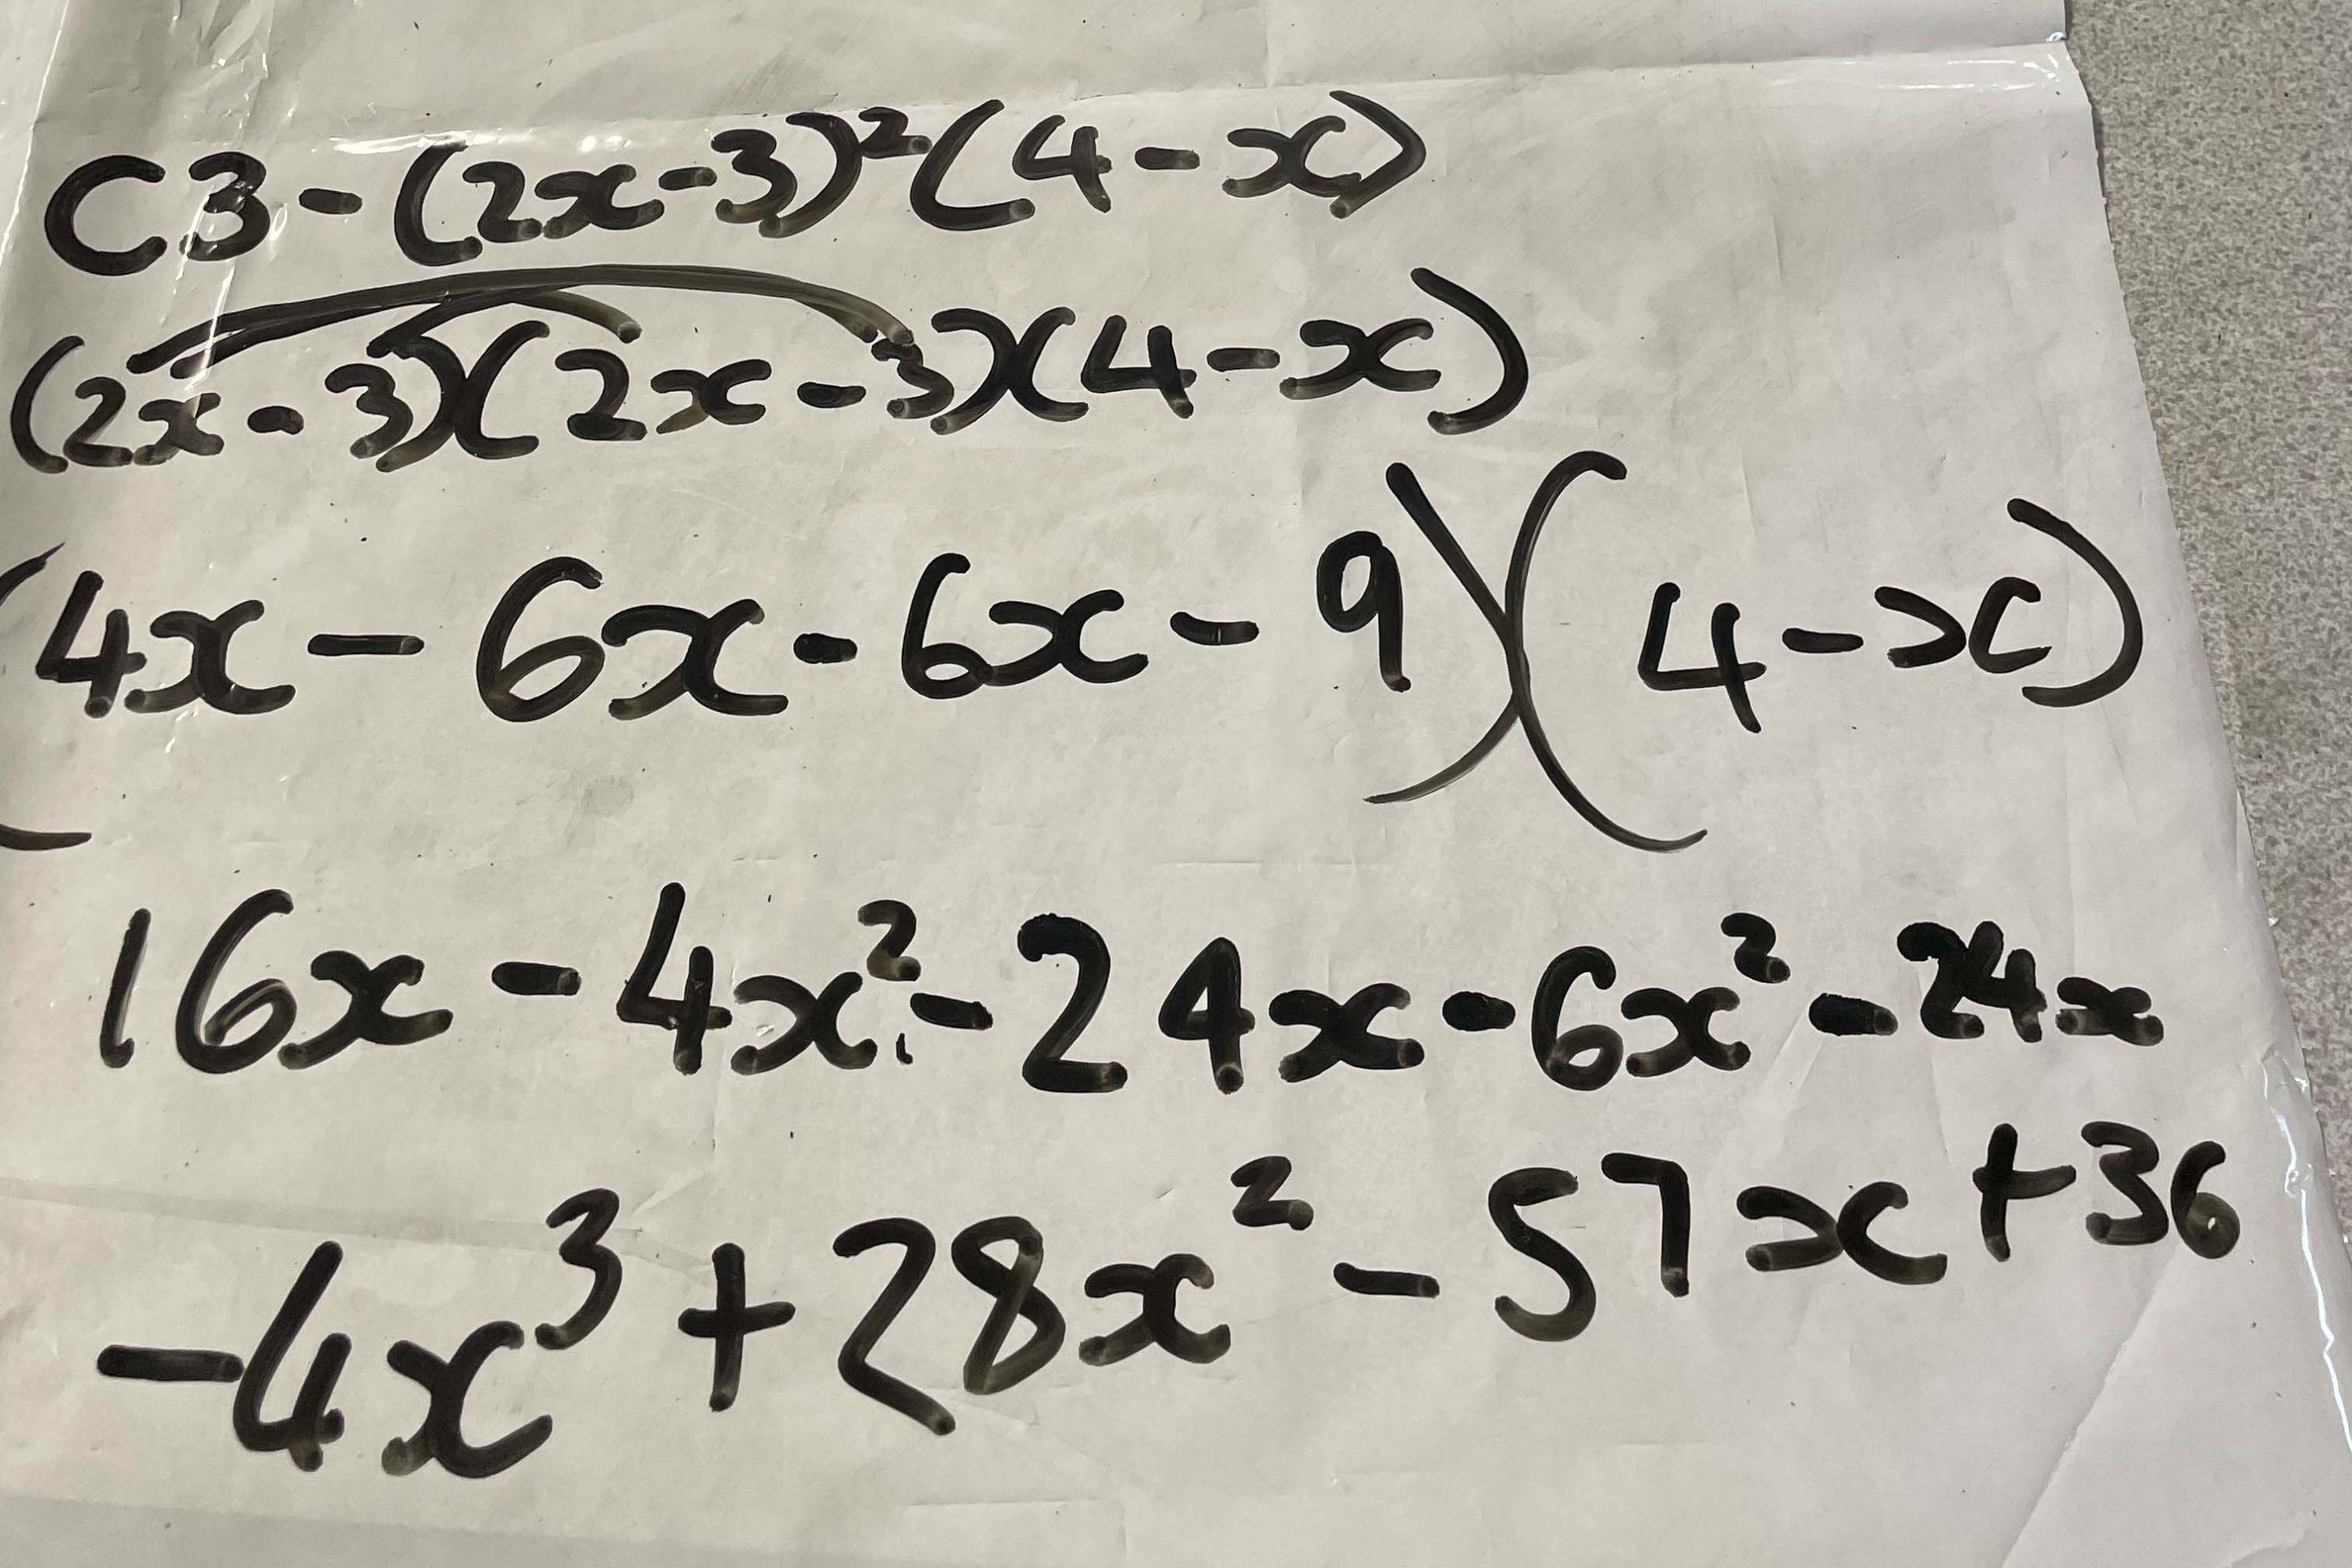 C3 - (2x-3)²(4-x)
(2x-3)(2x-3)(4-x)
(4x - 6x - 6x - 9)(4-x)
16x - 4x² - 24x - 6x² - 24x
-4x³ + 28x² - 57x + 36